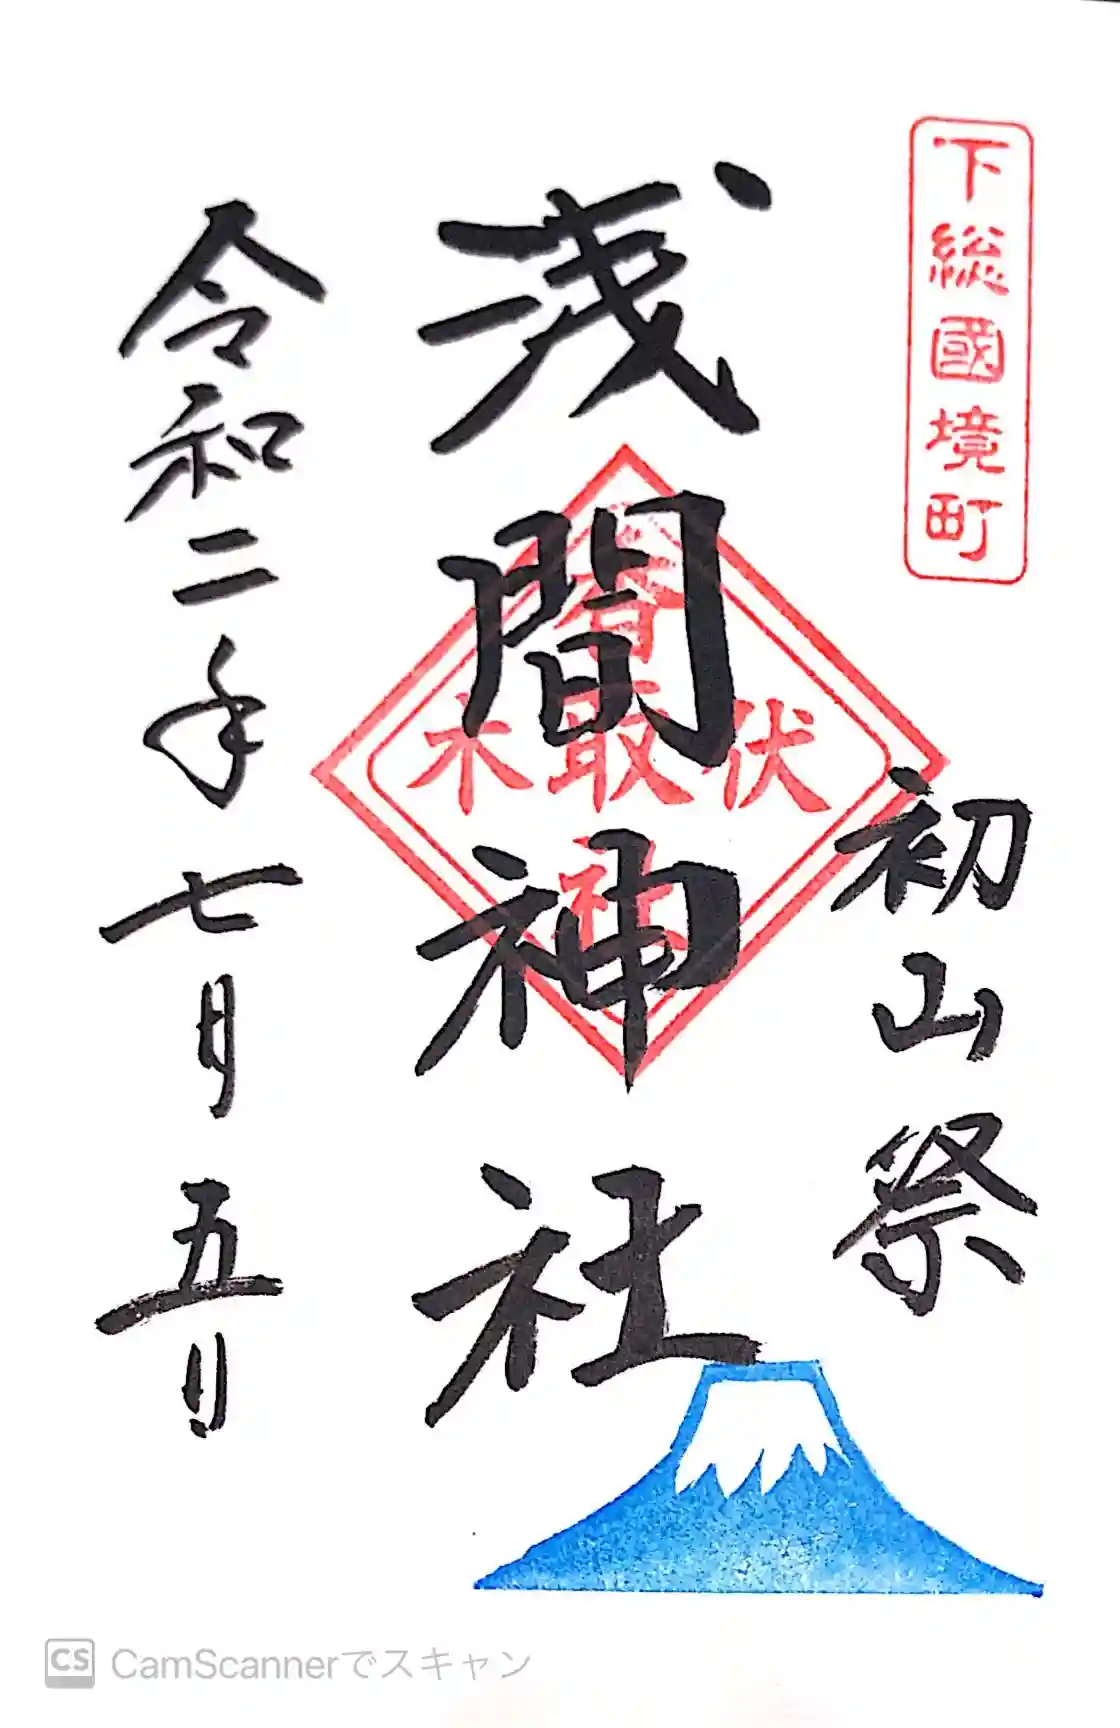 下総國境町
初山祭
浅間神社
香
伏取木
社
令和二年七月五日
CS CamScannerでスキャン